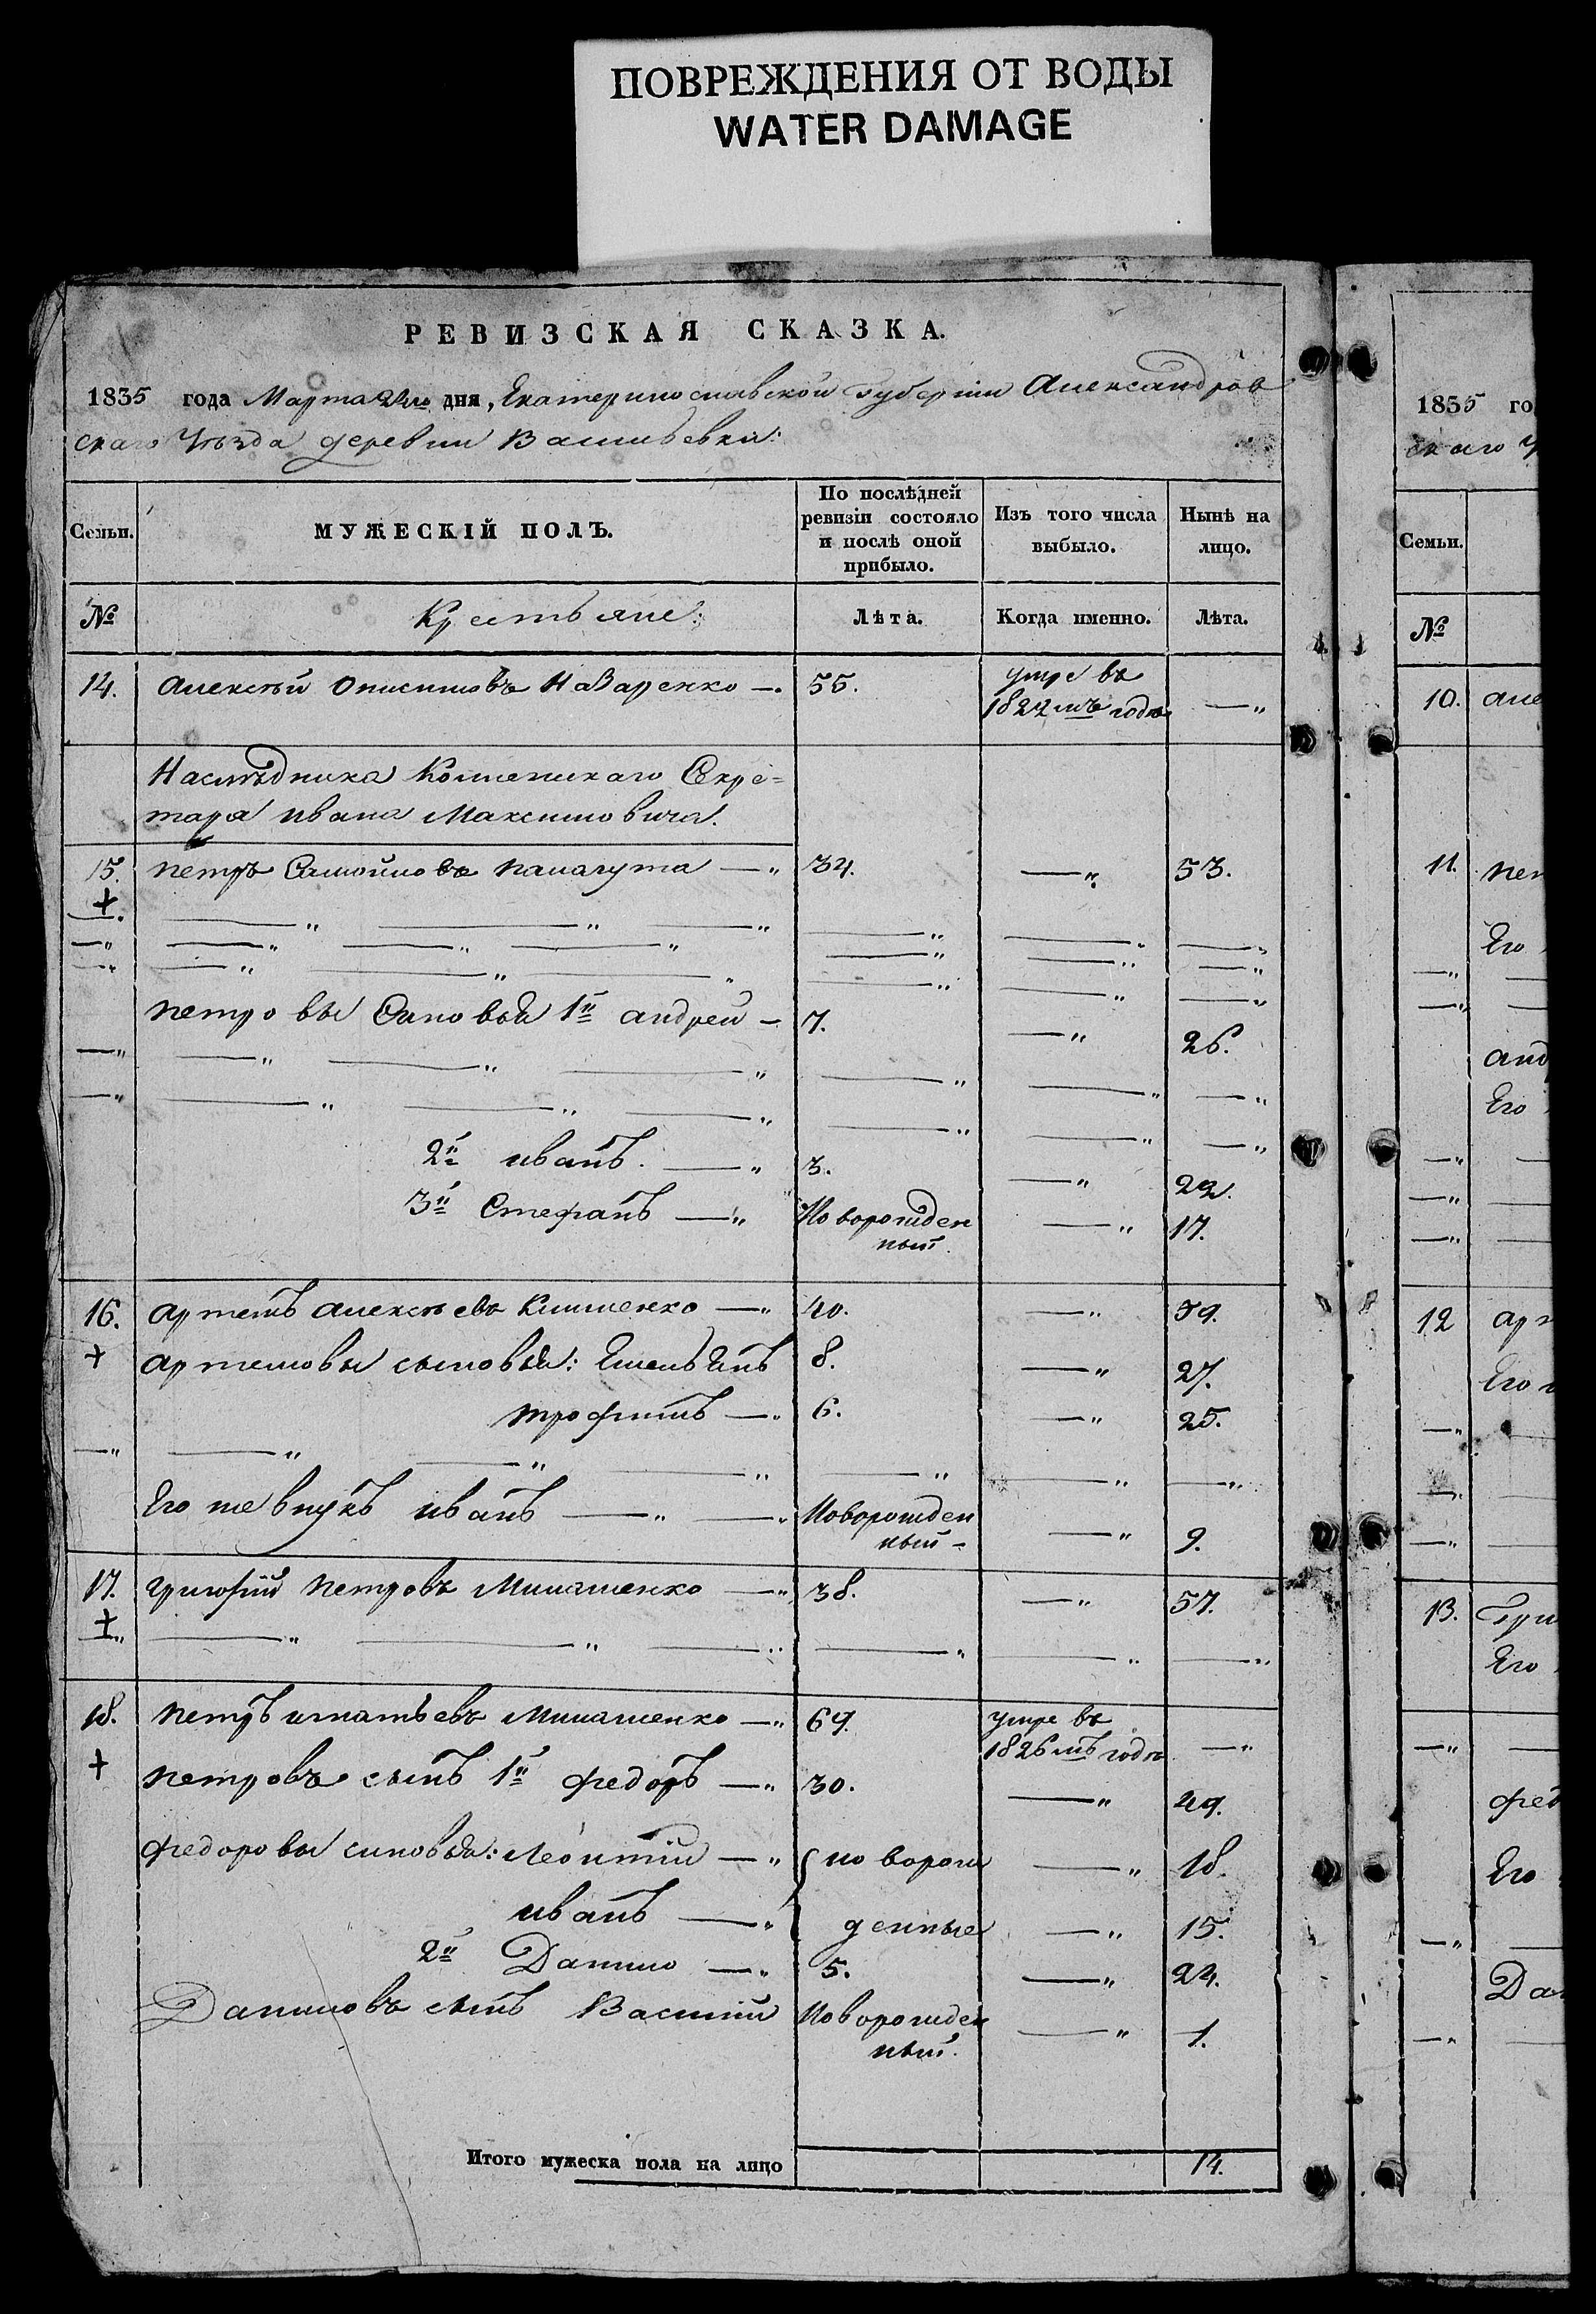 ПОВРЕЖДЕНИЯ ОТ ВОДЫ
WATER DAMAGE
РЕВИЗСКАЯ СКАЗКА.
1835 года Марта 22го дня, Екатеринославской Губерніи Александров
скаго Уѣзда деревни Васильевки:
Семьи. МУЖЕСКІЙ ПОЛЪ. По послѣдней ревизіи состояло и послѣ оной прибыло. Изъ того числа выбыло. Нынѣ на лицо.
№ Крестьяне: Лѣта. Когда именно. Лѣта.
14. Алексѣй Онисимовъ Назаренко —. 55. умре въ 1822мъ годѣ — „
Наслѣдника Коллежскаго Секре=
таря Ивана Максимовича.
15. Петръ Самойловъ Палагута — „ 34. — „ 53.
+
Петровы Синовья 1й Андрей — 7. — „ 26.
2й Иванъ. — „ 3. — „ 22.
3й Стефанъ — „ Новорожден ный. — „ 17.
16. Артемъ Алексѣевъ Клименко — „ 40. — „ 59.
+ Артемовы сыновья: Емельянъ 8. — „ 27.
Трофимъ — „ 6. — „ 25.
Его же внукъ Иванъ — „ — „ Новорожден ный — — „ 9.
17. Григорій Петровъ Минашенко — „ 38. — „ 57.
+
18. Петръ Игнатьевъ Минашенко — „ 69. умре въ 1826мъ годѣ — „
+ Петровъ сынъ 1й Федоръ — „ 30. — „ 49.
Федоровы синовья: Леонтій — „ новорож — „ 18.
Иванъ — „ денные — „ 15.
2й Данило — „ 5. — „ 24.
Даниловъ сынъ Василій Новорожден ный. — „ 1.
Итого мужеска пола на лицо 14.
1835 го
скаго У
Семьи.
№
10. Але
11. Пет
Его
Анд
Его
12 Арт
Его
13. Гри
Его
Фед
Его
Дан